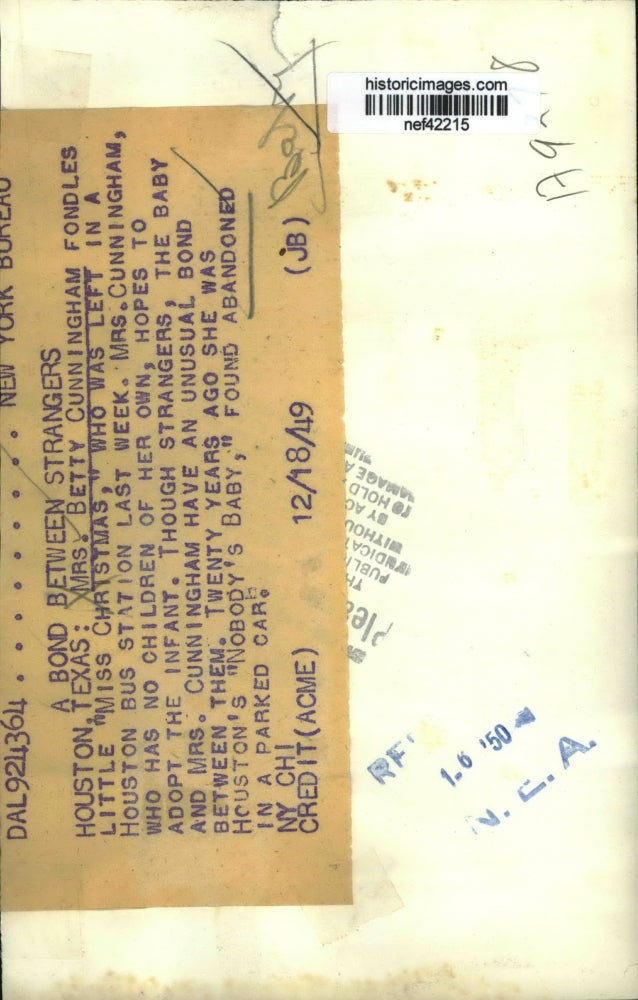 historicimages.com
nef42215
DAL924364 . . . . . . . . . . NEW YORK BUREAU
A BOND BETWEEN STRANGERS
HOUSTON, TEXAS: MRS. BETTY CUNNINGHAM FONDLES
LITTLE "MISS CHRISTMAS," WHO WAS LEFT IN A
HOUSTON BUS STATION LAST WEEK. MRS. CUNNINGHAM,
WHO HAS NO CHILDREN OF HER OWN, HOPES TO
ADOPT THE INFANT. THOUGH STRANGERS, THE BABY
AND MRS. CUNNINGHAM HAVE AN UNUSUAL BOND
BETWEEN THEM. TWENTY YEARS AGO SHE WAS
HOUSTON'S "NOBODY'S BABY," FOUND ABANDONED
IN A PARKED CAR.
NY CHI
CREDIT (ACME) 12/18/49 (JB)
1-6 '50
N. E. A.